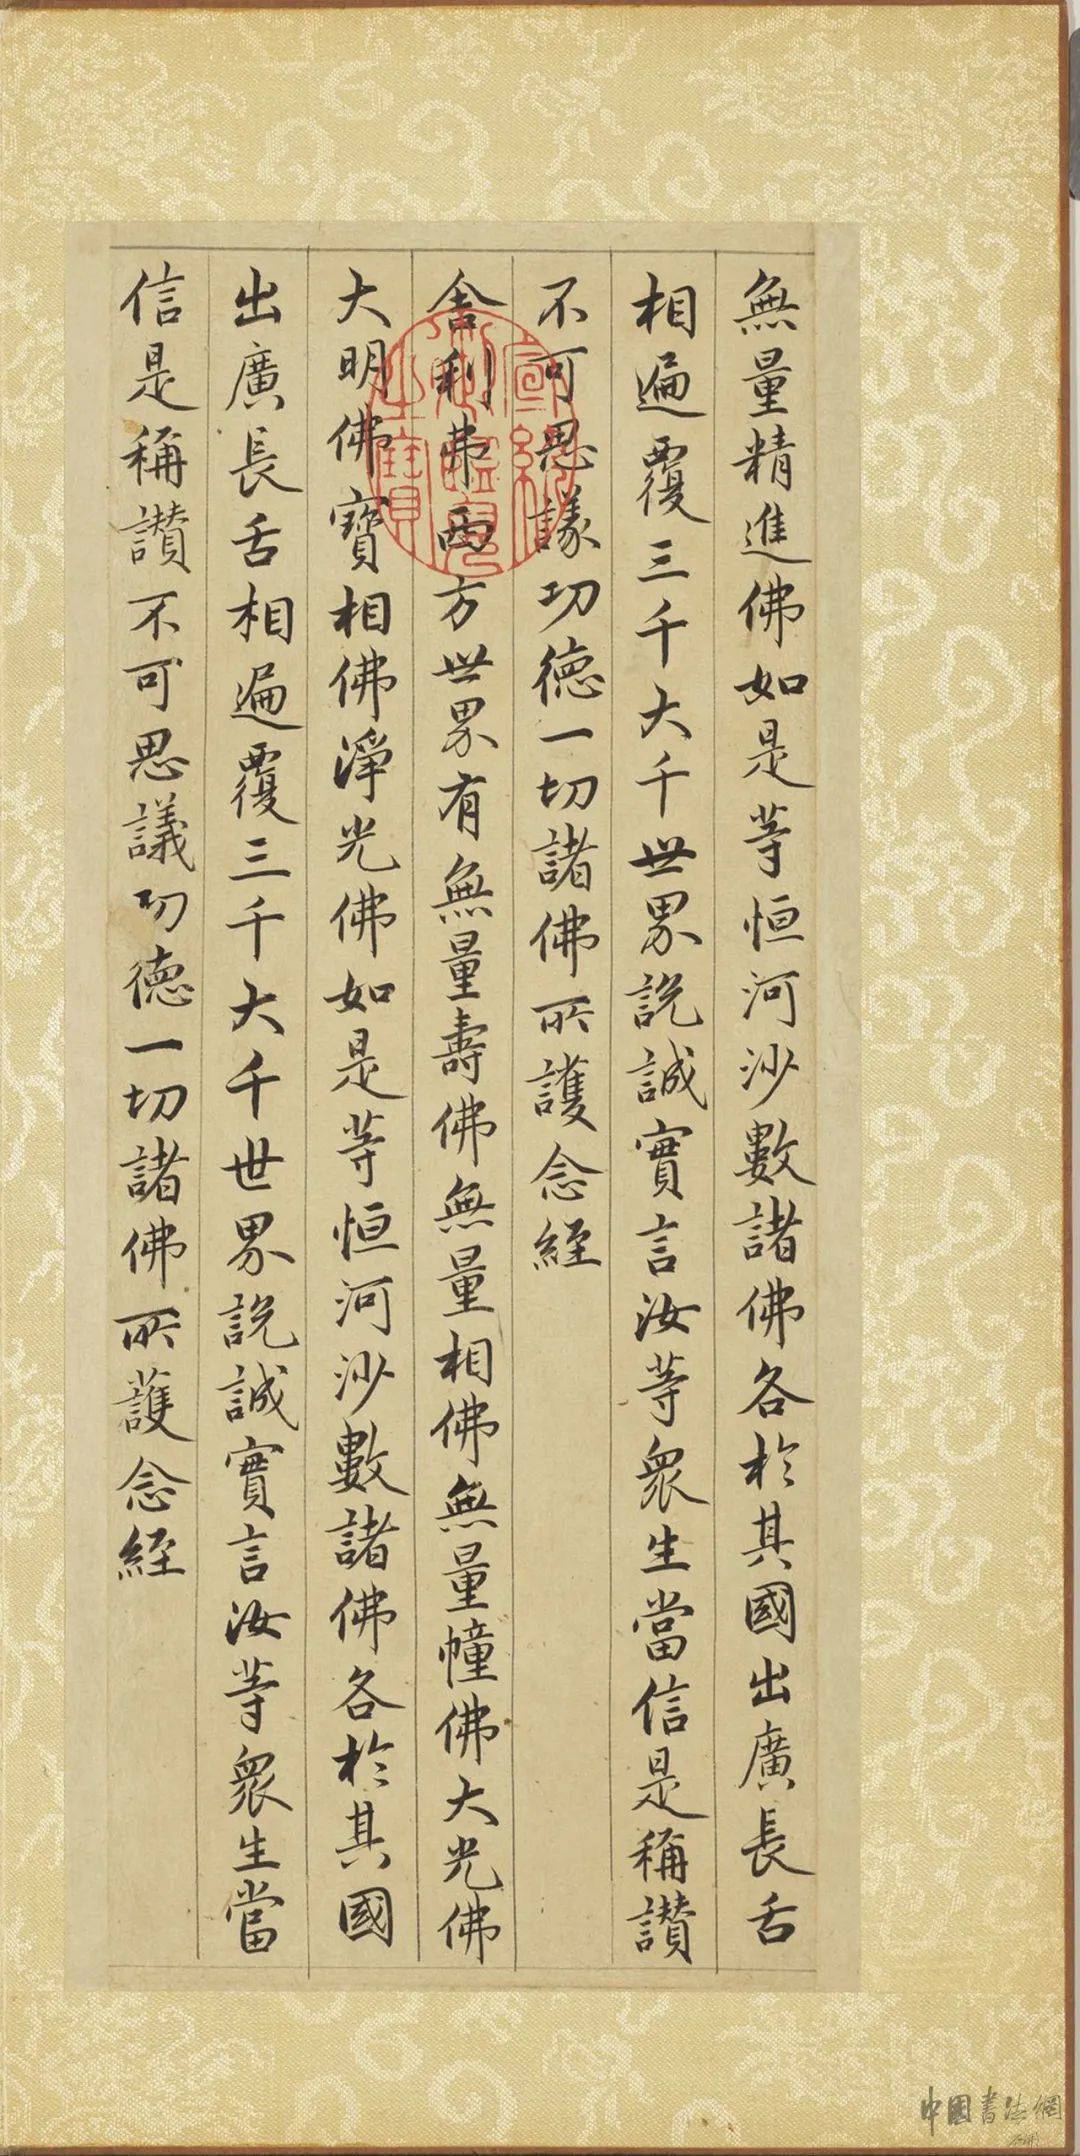 無量精進佛如是等恒河沙數諸佛各於其國出廣長舌
相遍覆三千大千世界說誠實言汝等眾生當信是稱讚
不可思議功德一切諸佛所護念經
舍利弗西方世界有無量壽佛無量相佛無量幢佛大光佛
大明佛寶相佛淨光佛如是等恒河沙數諸佛各於其國
出廣長舌相遍覆三千大千世界說誠實言汝等眾生當
信是稱讚不可思議功德一切諸佛所護念經
宣統御覽之寶
中國書法網